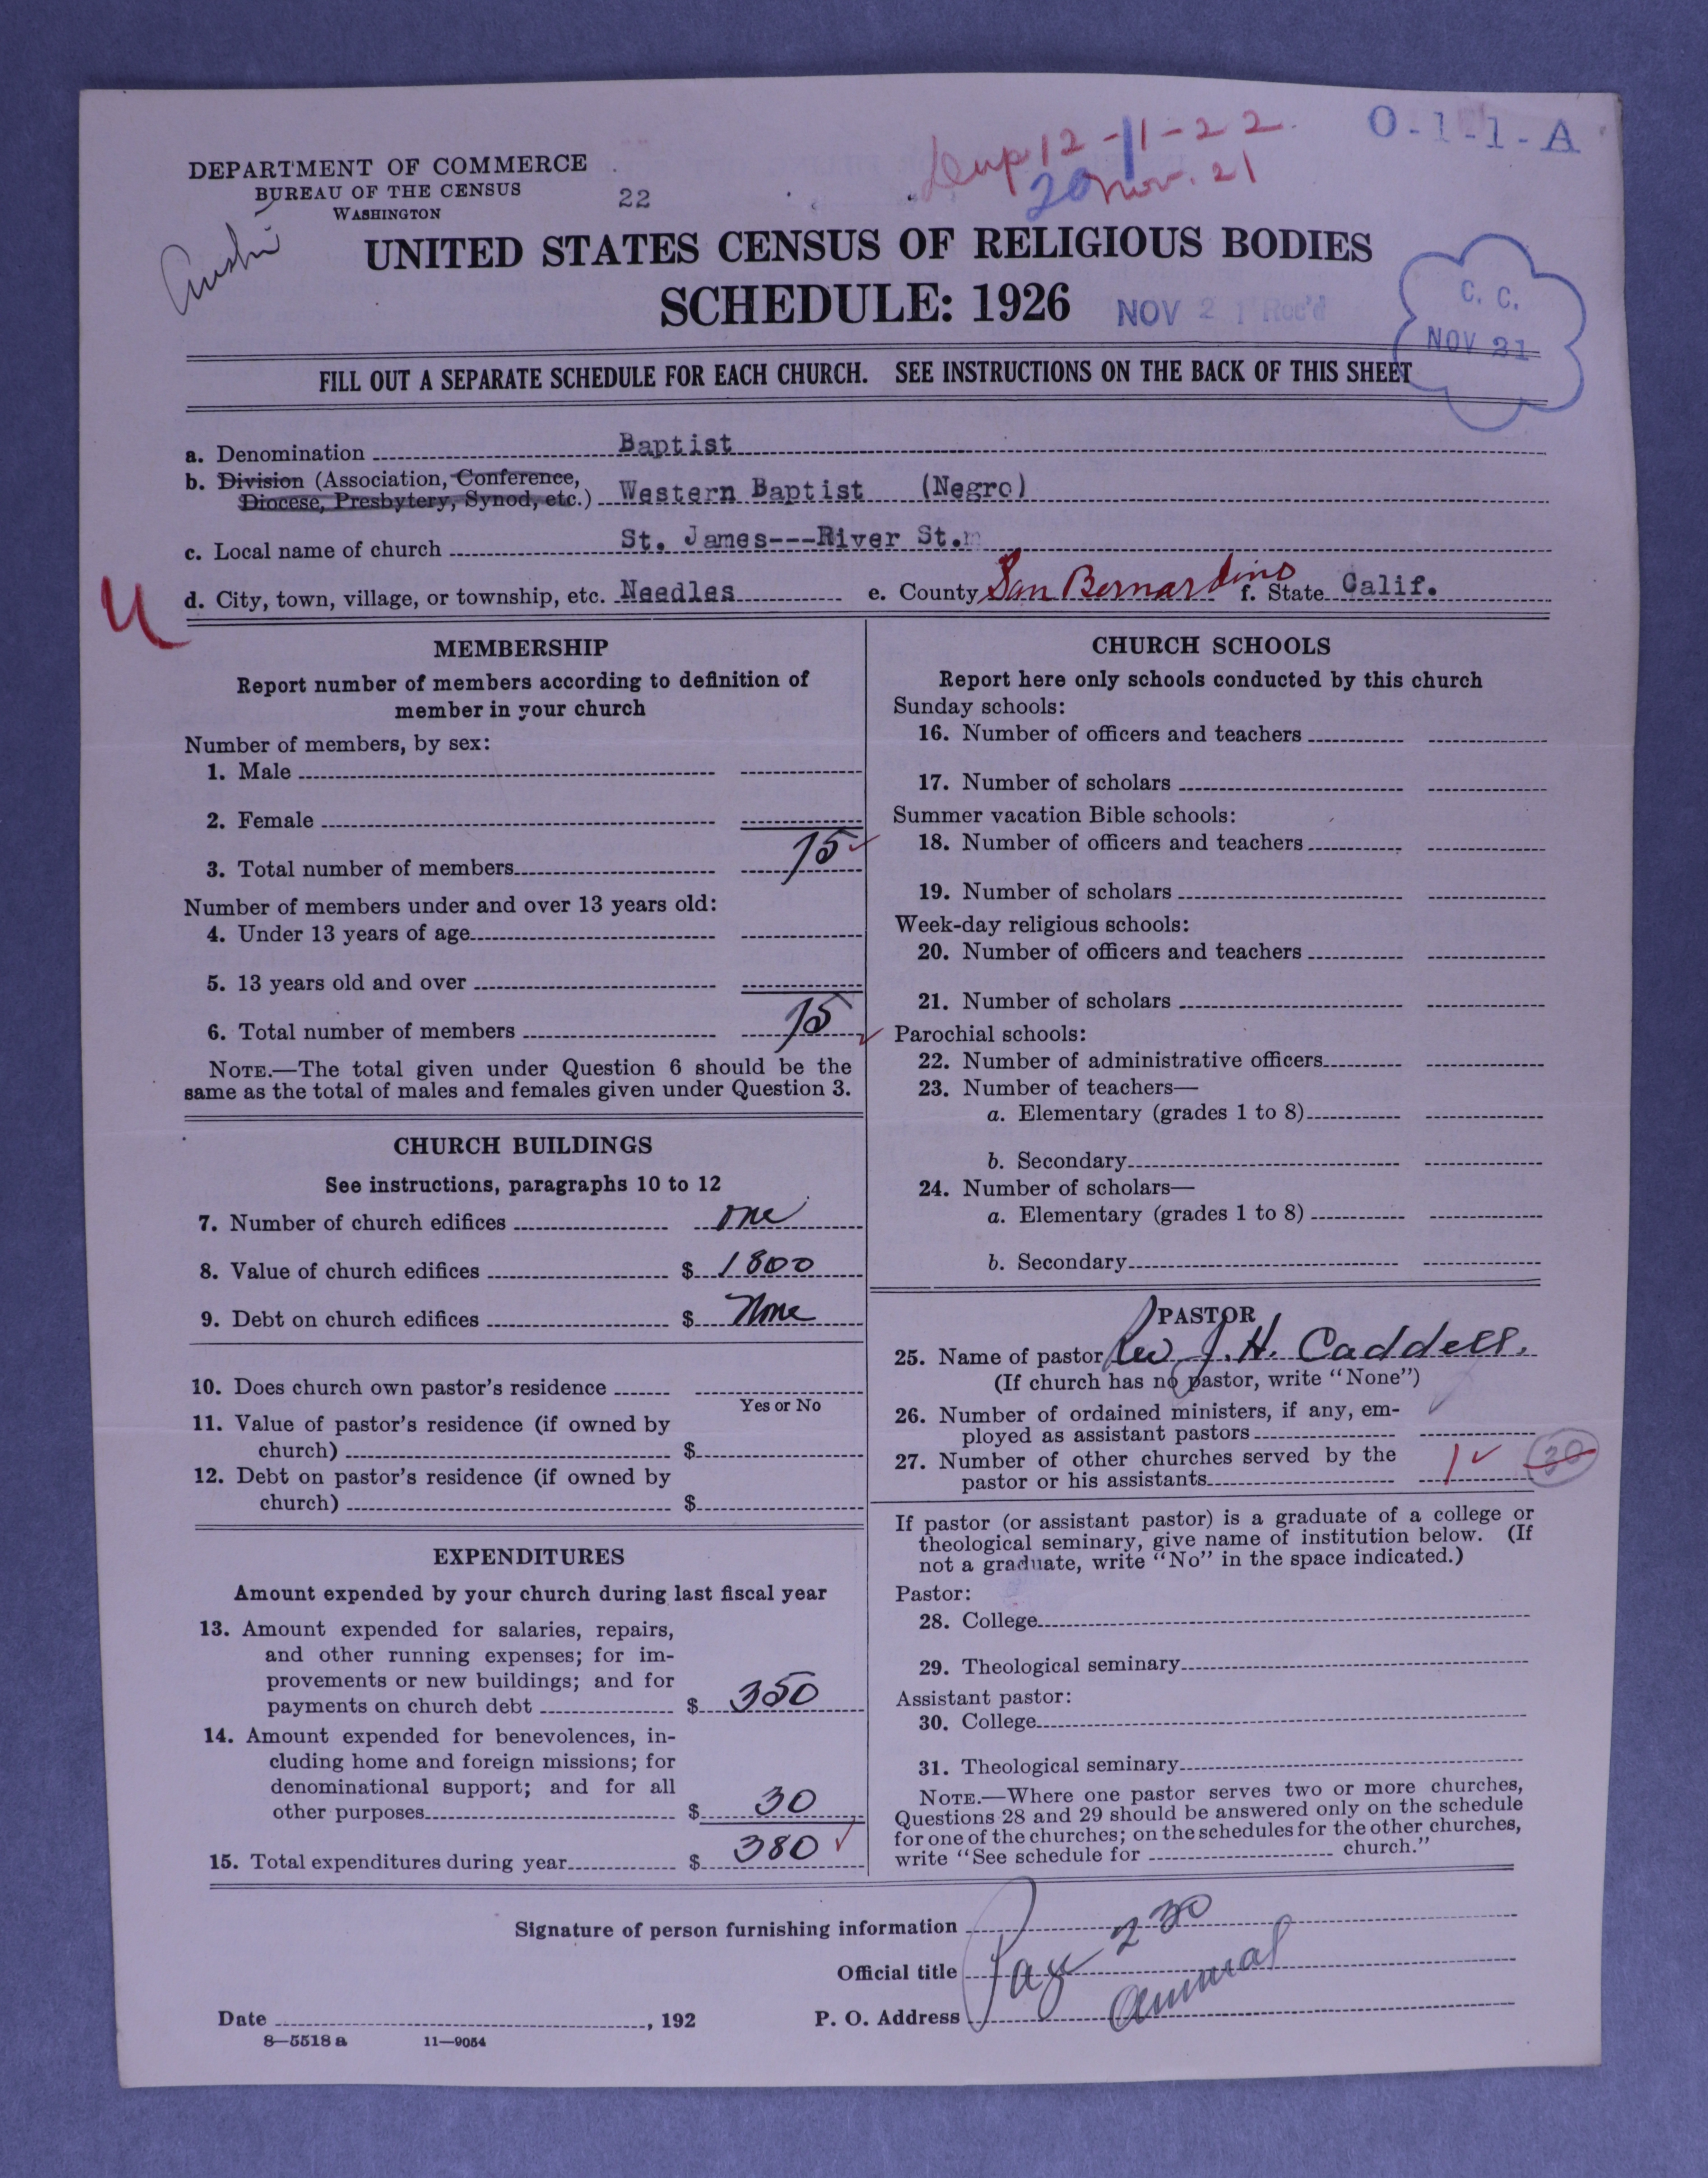 O-1-1-A
12-11-22
20 Nov. 21
DEPARTMENT OF COMMERCE
BUREAU OF THE CENSUS
WASHINGTON
22
UNITED STATES CENSUS OF RELIGIOUS BODIES
SCHEDULE: 1926
NOV 21 Rec'd
C. C.
NOV 21
FILL OUT A SEPARATE SCHEDULE FOR EACH CHURCH. SEE INSTRUCTIONS ON THE BACK OF THIS SHEET
a. Denomination Baptist
b. Division (Association, Conference,
Diocese, Presbytery, Synod, etc.) Western Baptist (Negro)
c. Local name of church St. James---River St.
d. City, town, village, or township, etc. Needles e. County San Bernardino f. State Calif.
U
MEMBERSHIP
Report number of members according to definition of
member in your church
Number of members, by sex:
1. Male
2. Female
3. Total number of members 15
Number of members under and over 13 years old:
4. Under 13 years of age
5. 13 years old and over
6. Total number of members 15
NOTE.—The total given under Question 6 should be the
same as the total of males and females given under Question 3.
CHURCH BUILDINGS
See instructions, paragraphs 10 to 12
7. Number of church edifices one
8. Value of church edifices $ 1800
9. Debt on church edifices $ None
10. Does church own pastor's residence
Yes or No
11. Value of pastor's residence (if owned by
church) $
12. Debt on pastor's residence (if owned by
church) $
EXPENDITURES
Amount expended by your church during last fiscal year
13. Amount expended for salaries, repairs,
and other running expenses; for im-
provements or new buildings; and for
payments on church debt $ 350
14. Amount expended for benevolences, in-
cluding home and foreign missions; for
denominational support; and for all
other purposes $ 30
15. Total expenditures during year $ 380
CHURCH SCHOOLS
Report here only schools conducted by this church
Sunday schools:
16. Number of officers and teachers
17. Number of scholars
Summer vacation Bible schools:
18. Number of officers and teachers
19. Number of scholars
Week-day religious schools:
20. Number of officers and teachers
21. Number of scholars
Parochial schools:
22. Number of administrative officers
23. Number of teachers—
a. Elementary (grades 1 to 8)
b. Secondary
24. Number of scholars—
a. Elementary (grades 1 to 8)
b. Secondary
PASTOR
25. Name of pastor Rev J. H. Caddell.
(If church has no pastor, write "None")
26. Number of ordained ministers, if any, em-
ployed as assistant pastors
27. Number of other churches served by the
pastor or his assistants 1 30
If pastor (or assistant pastor) is a graduate of a college or
theological seminary, give name of institution below. (If
not a graduate, write "No" in the space indicated.)
Pastor:
28. College
29. Theological seminary
Assistant pastor:
30. College
31. Theological seminary
NOTE.—Where one pastor serves two or more churches,
Questions 28 and 29 should be answered only on the schedule
for one of the churches; on the schedules for the other churches,
write "See schedule for church."
Signature of person furnishing information
Official title Pay 230
P. O. Address annual
Date , 192
8—5518 a 11—9054